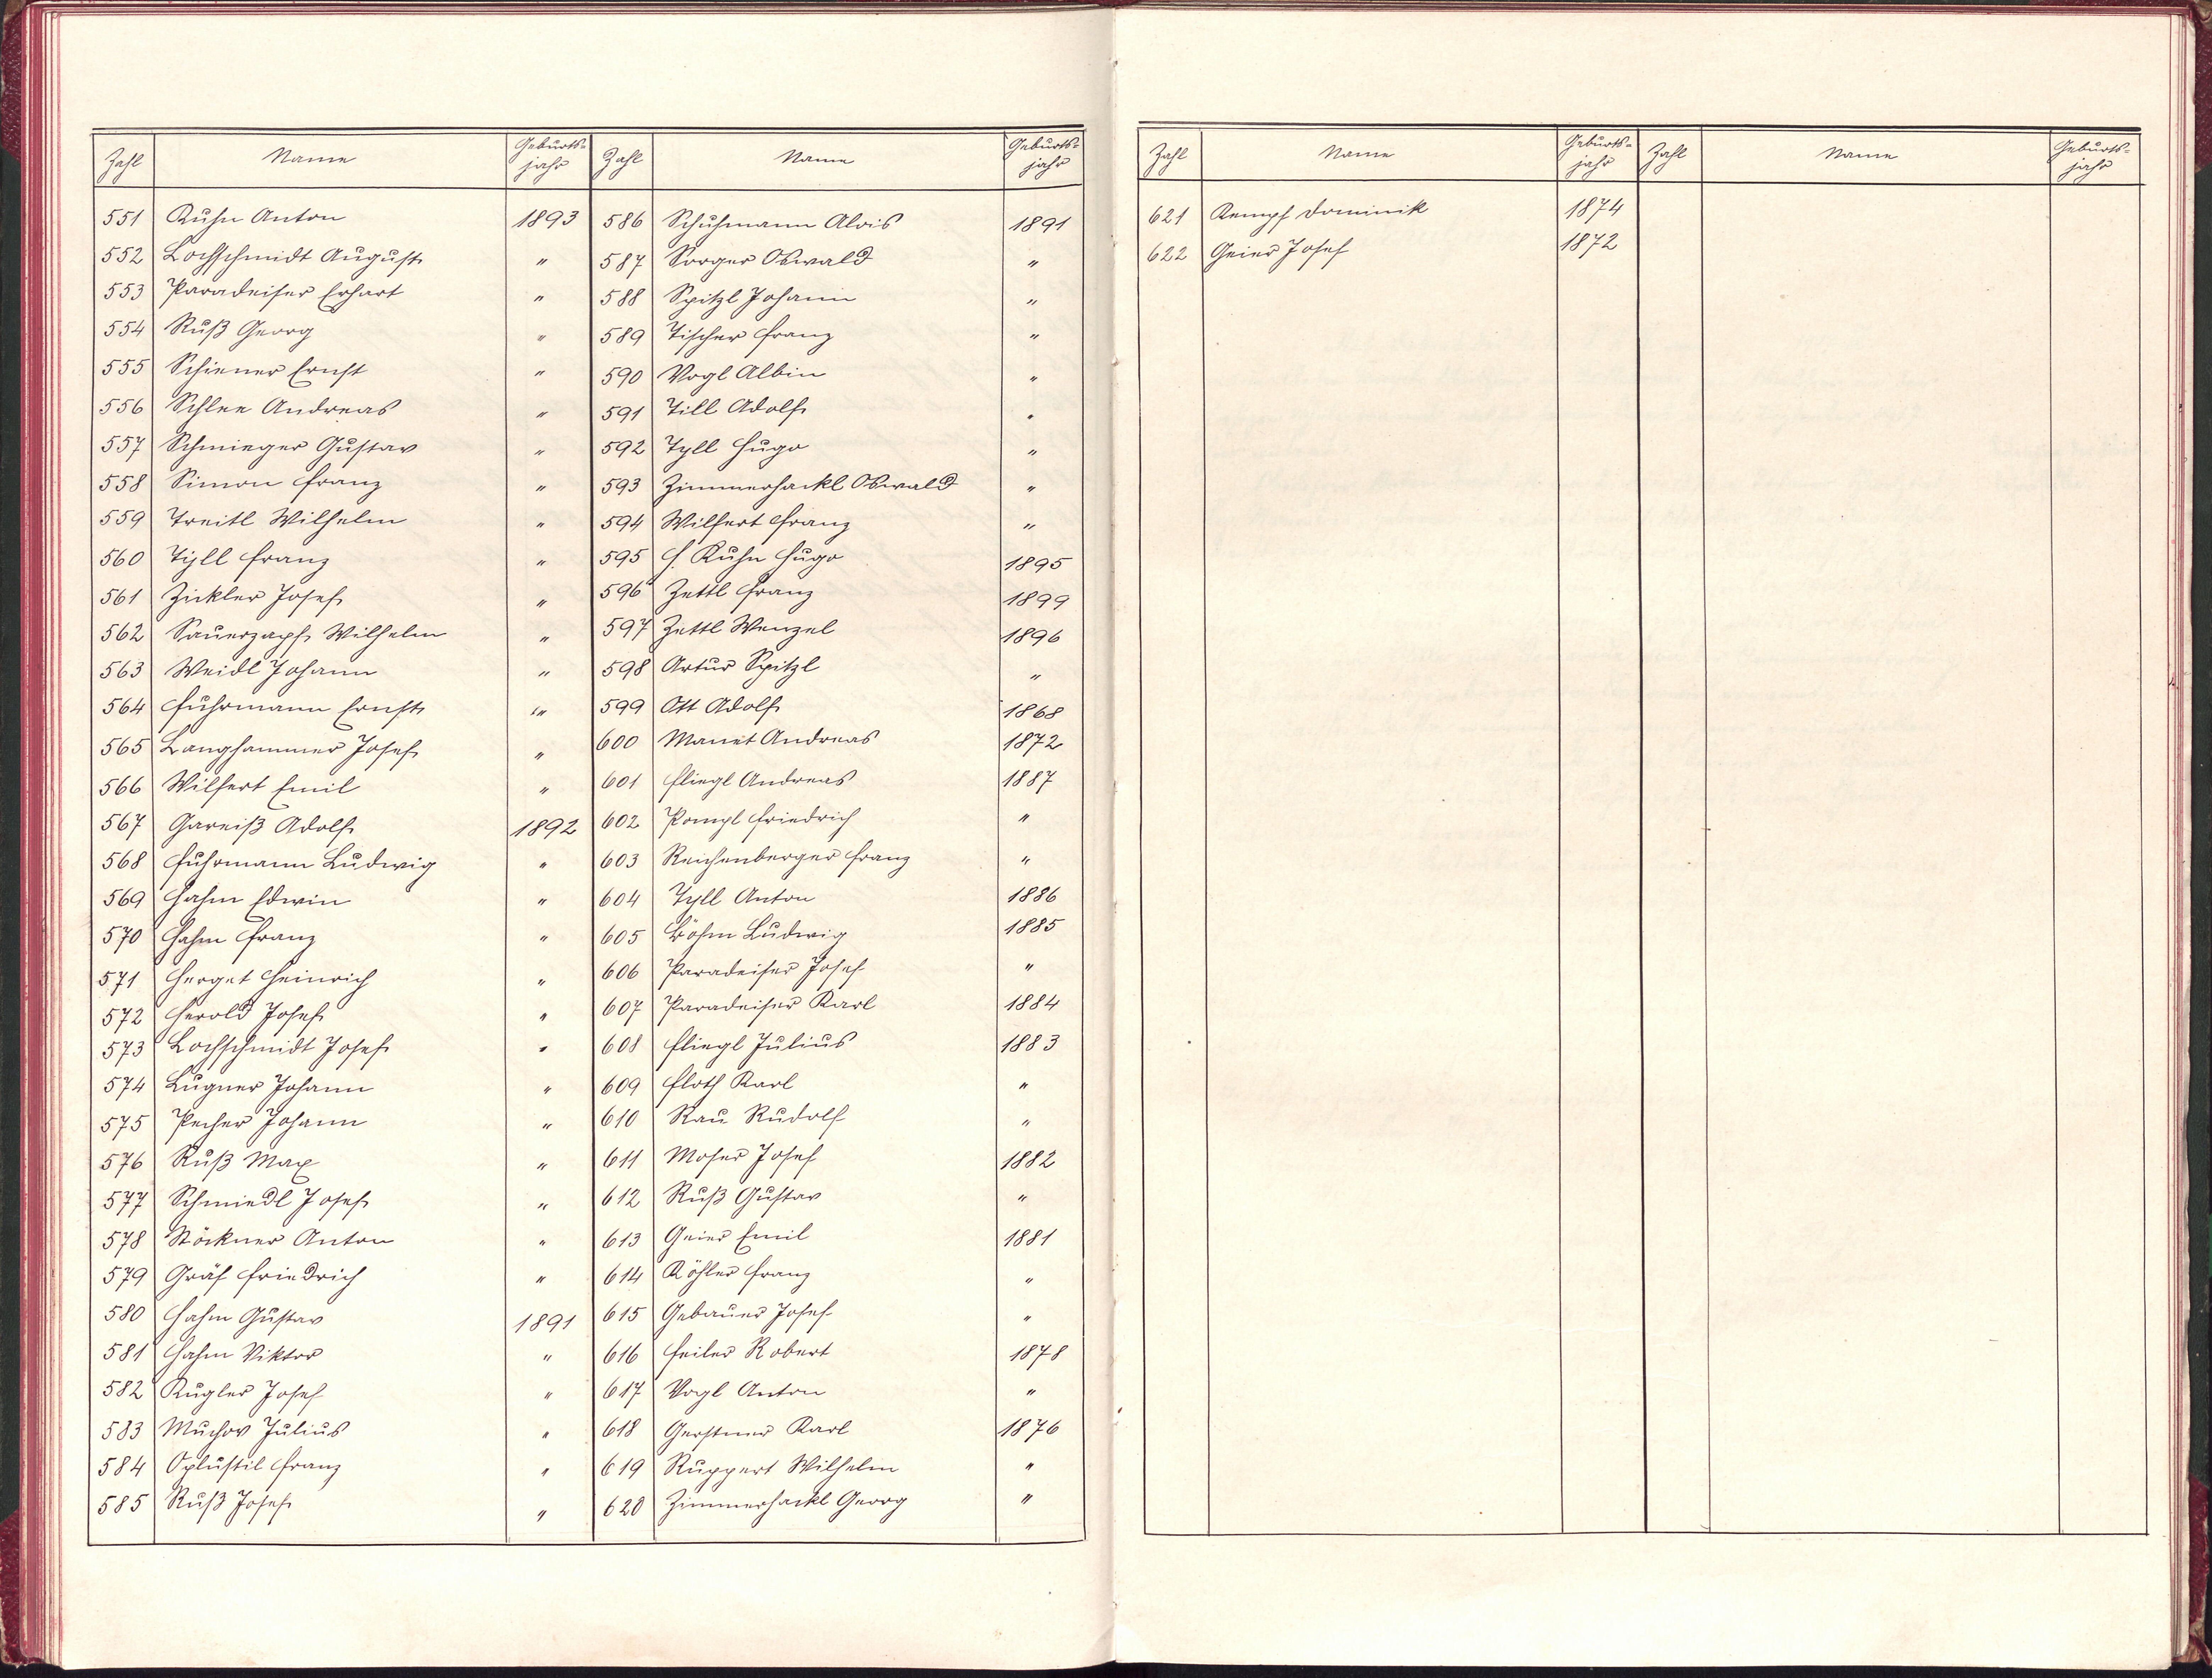 Zahl Name Geburts-jahr Zahl Name Geburts-jahr
551 Kuhn Anton 1893
552 Lochschmidt August "
553 Paradeiser Erhart "
554 Ruß Georg "
555 Schiener Ernst "
556 Schlee Andreas "
557 Schmieger Gustav "
558 Simon Franz "
559 Treitl Wilhelm "
560 Tyll Franz "
561 Zickler Josef "
562 Sauerzapf Wilhelm "
563 Weidl Johann "
564 Fuhrmann Ernst "
565 Langhammer Josef "
566 Wilfert Emil "
567 Gareiß Adolf 1892
568 Fuhrmann Ludwig "
569 Hahn Edwin "
570 Hahn Franz "
571 Herget Heinrich "
572 Herold Josef "
573 Lochschmidt Josef "
574 Lugner Johann "
575 Pecher Johann "
576 Ruß Max "
577 Schmiedl Josef "
578 Stöckner Anton "
579 Gräf Friedrich "
580 Hahn Gustav 1891
581 Hahn Viktor "
582 Kugler Josef "
583 Muchov Julius "
584 Oplustil Franz "
585 Ruß Josef "
586 Schuhmann Alois 1891
587 Sorger Oswald "
588 Spitzl Johann "
589 Tischer Franz "
590 Vogl Albin "
591 Till Adolf "
592 Tyll Hugo "
593 Zimmerhackl Oswald "
594 Wilfert Franz "
595 H. Kuhn Hugo 1895
596 Zettl Franz 1899
597 Zettl Wenzel 1896
598 Artur Spitzl "
599 Ott Adolf 1868
600 Manet Andreas 1872
601 Fliegl Andreas 1887
602 Pompl Friedrich "
603 Reichenberger Franz "
604 Tyll Anton 1886
605 Böhm Ludwig 1885
606 Paradeiser Josef "
607 Paradeiser Karl 1884
608 Fliegl Julius 1883
609 Floth Karl "
610 Rau Rudolf "
611 Moser Josef 1882
612 Ruß Gustav "
613 Geier Emil 1881
614 Köhler Franz "
615 Gebauer Josef "
616 Feiler Robert 1878
617 Vogl Anton "
618 Gerstner Karl 1876
619 Ruppert Wilhelm "
620 Zimmerhackl Georg "
Zahl Name Geburts-jahr Zahl Name Geburts-jahr
621 Kempf Dominik 1874
622 Geier Josef 1872